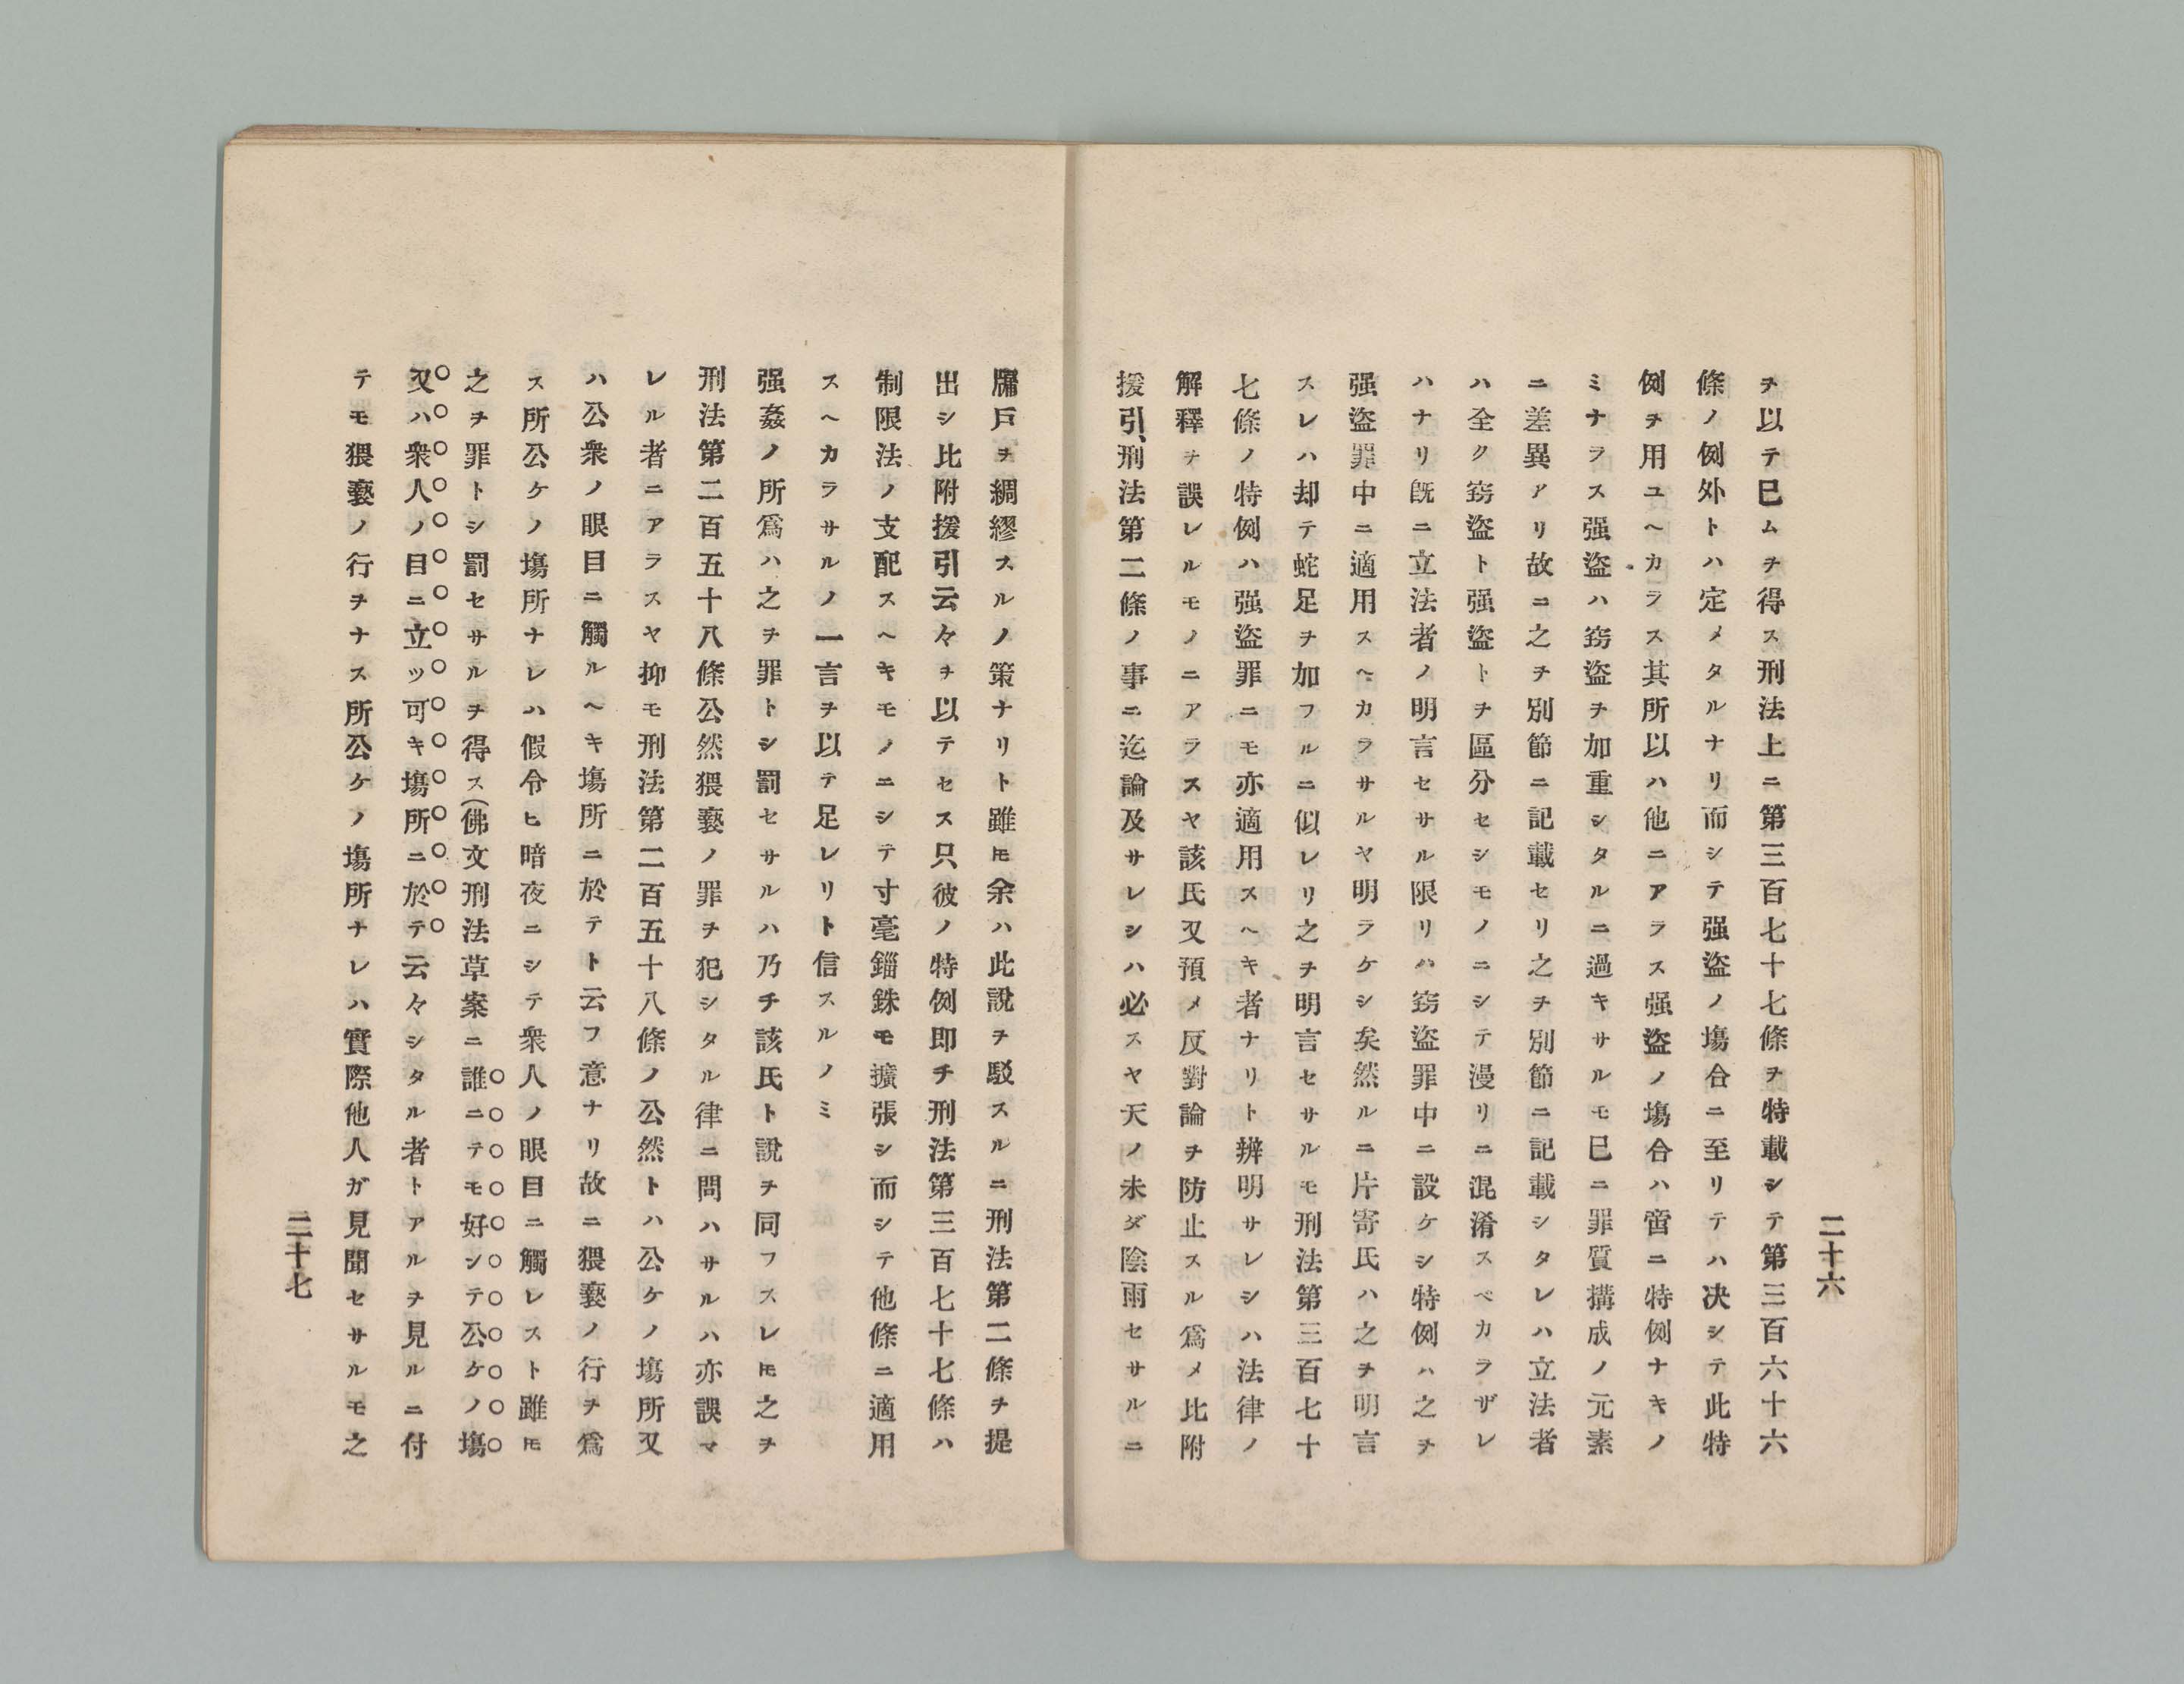 二十六
ヲ以テ已ムヲ得ス刑法上ニ第三百七十七條ヲ特載シテ第三百六十六
條ノ例外トハ定メタルナリ而シテ强盜ノ塲合ニ至リテハ决シテ此特
例ヲ用ユヘカラス其所以ハ他ニアラス强盜ノ塲合ハ啻ニ特例ナキノ
ミナラス强盜ハ窃盜ヲ加重シタルニ過キサルモ已ニ罪質搆成ノ元素
ニ差異アリ故ニ之ヲ別節ニ記載セリ之ヲ別節ニ記載シタレハ立法者
ハ全ク窃盜ト强盜トヲ區分セシモノニシテ漫リニ混淆スベカラザレ
ハナリ既ニ立法者ノ明言セサル限リハ窃盜罪中ニ設ケシ特例ハ之ヲ
强盜罪中ニ適用スヘカラサルヤ明ラケシ矣然ルニ片寄氏ハ之ヲ明言
スレハ却テ蛇足ヲ加フルニ似レリ之ヲ明言セサルモ刑法第三百七十
七條ノ特例ハ强盜罪ニモ亦適用スヘキ者ナリト辨明サレシハ法律ノ
解釋ヲ誤レルモノニアラスヤ該氏又預メ反對論ヲ防止スル爲メ比附
援引、刑法第二條ノ事ニ迄論及サレシハ必スヤ天ノ未ダ陰雨セサルニ
牖戶ヲ綢繆スルノ策ナリト雖𪜈余ハ此說ヲ駁スルニ刑法第二條ヲ提
出シ比附援引云々ヲ以テセス只彼ノ特例即チ刑法第三百七十七條ハ
制限法ノ支配スヘキモノニシテ寸毫錙銖モ擴張シ而シテ他條ニ適用
スヘカラサルノ一言ヲ以テ足レリト信スルノミ
强姦ノ所爲ハ之ヲ罪トシ罰セサルハ乃チ該氏ト說ヲ同フスレ𪜈之ヲ
刑法第二百五十八條公然猥褻ノ罪ヲ犯シタル律ニ問ハサルハ亦誤マ
レル者ニアラスヤ抑モ刑法第二百五十八條ノ公然トハ公ケノ塲所又
ハ公衆ノ眼目ニ觸ルヘキ塲所ニ於テト云フ意ナリ故ニ猥褻ノ行ヲ爲
ス所公ケノ塲所ナレハ假令ヒ暗夜ニシテ衆人ノ眼目ニ觸レスト雖𪜈
之ヲ罪トシ罰セサルヲ得ス(佛文刑法草案ニ誰ニテモ好ンテ公ケノ塲
又ハ衆人ノ目ニ立ツ可キ塲所ニ於テ云々シタル者トアルヲ見ルニ付
テモ猥褻ノ行ヲナス所公ケノ塲所ナレハ實際他人ガ見聞セサルモ之
二十七